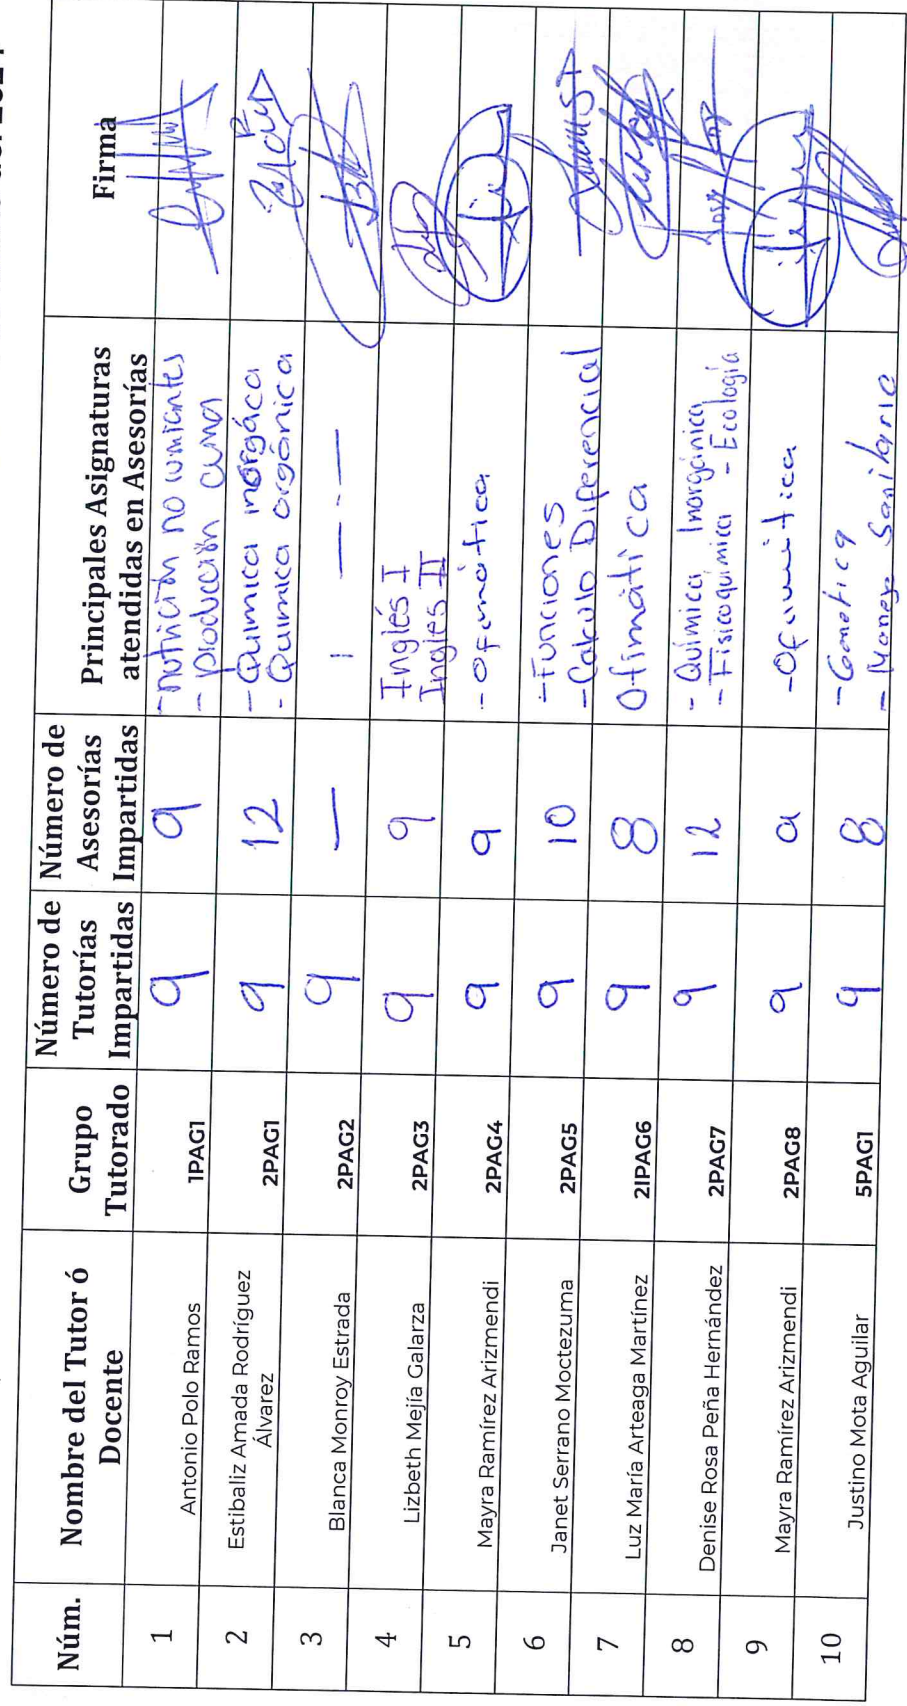 Núm.
Nombre del Tutor ó
Docente
Grupo
Tutorado
Número de
Tutorías
Impartidas
Número de
Asesorías
Impartidas
Principales Asignaturas
atendidas en Asesorías
Firma
1
Antonio Polo Ramos
1PAG1
9
9
-nutrición no rumiantes
- producción cunna
2
Estibaliz Amada Rodríguez
Álvarez
2PAG1
9
12
-Química inorgáca
- Quimica orgánica
3
Blanca Monroy Estrada
2PAG2
9
—
4
Lizbeth Mejía Galarza
2PAG3
9
9
Inglés I
Inglés II
5
Mayra Ramírez Arizmendi
2PAG4
9
9
-Ofimática
6
Janet Serrano Moctezuma
2PAG5
9
10
-Funciones
-Calculo Diferencial
7
Luz María Arteaga Martínez
2IPAG6
9
8
Ofimática
8
Denise Rosa Peña Hernández
2PAG7
9
12
- Química Inorgánica
- Fisicoquímica - Ecología
9
Mayra Ramírez Arizmendi
2PAG8
9
9
-Ofimática
10
Justino Mota Aguilar
5PAG1
9
8
-Genetica
- Manejo Sanitario